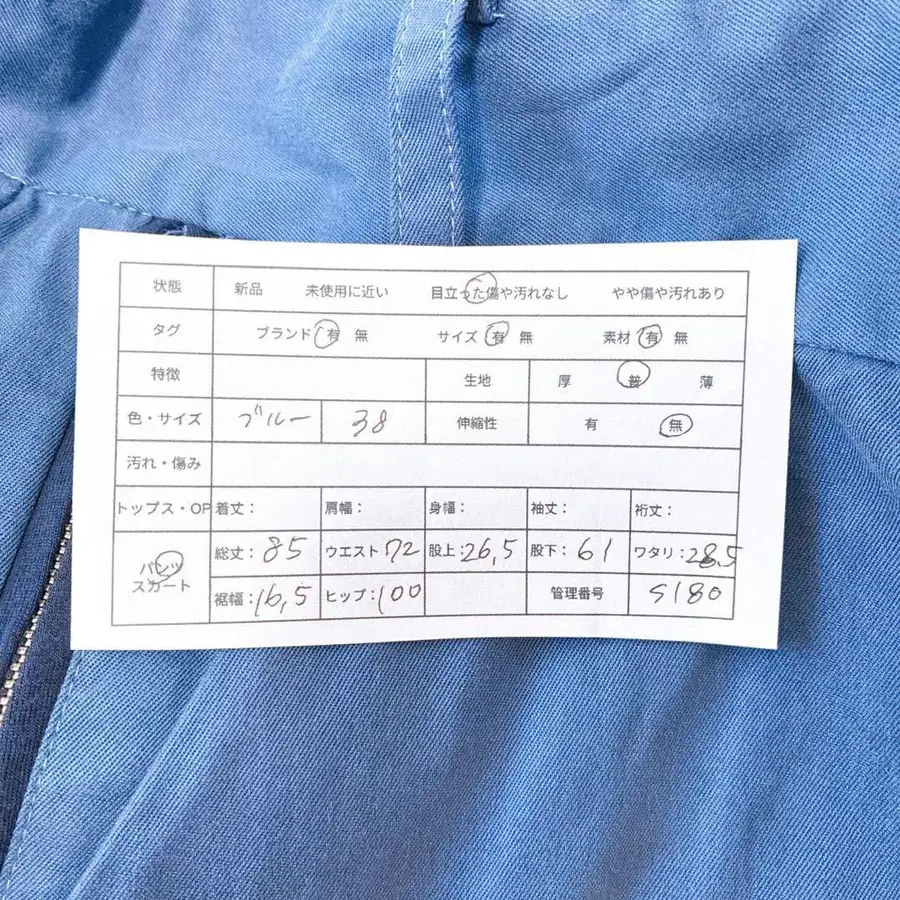 状態 新品 未使用に近い 目立った傷や汚れなし やや傷や汚れあり
タグ ブランド 有 無 サイズ 有 無 素材 有 無
特徴 生地 厚 普 薄
色・サイズ ブルー 38 伸縮性 有 無
汚れ・傷み
トップス・OP 着丈: 肩幅: 身幅: 袖丈: 裄丈:
パンツ 総丈:85 ウエスト72 股上:26,5 股下:61 ワタリ:28.5
スカート 裾幅:16,5 ヒップ:100 管理番号 S180